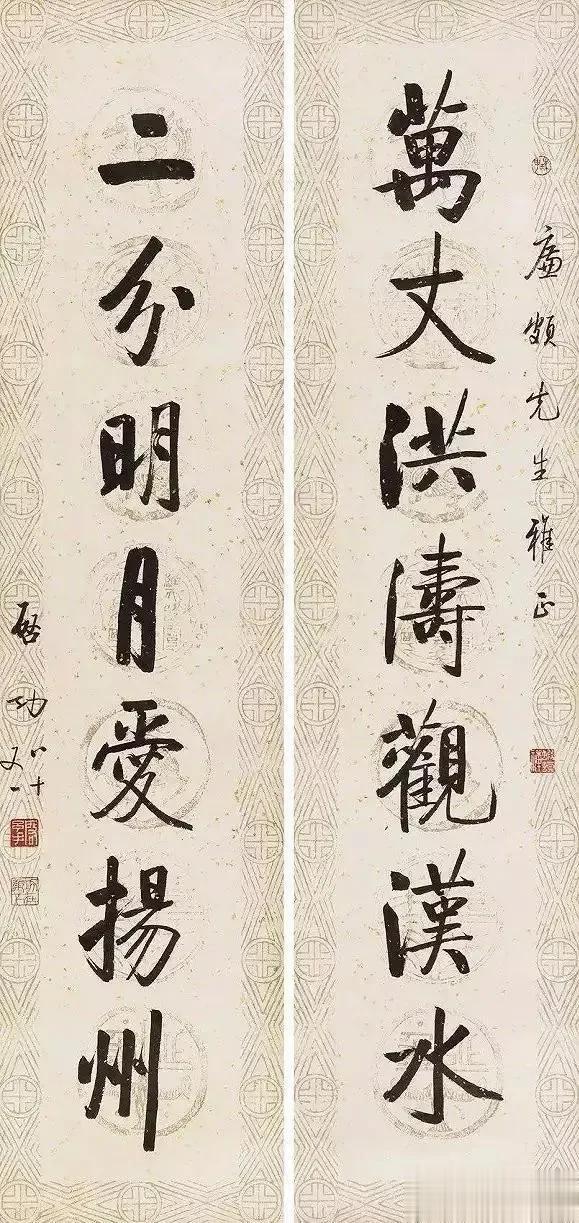 廉頗先生雅正
萬丈洪濤觀漢水
二分明月愛揚州
啓功
八十
又一